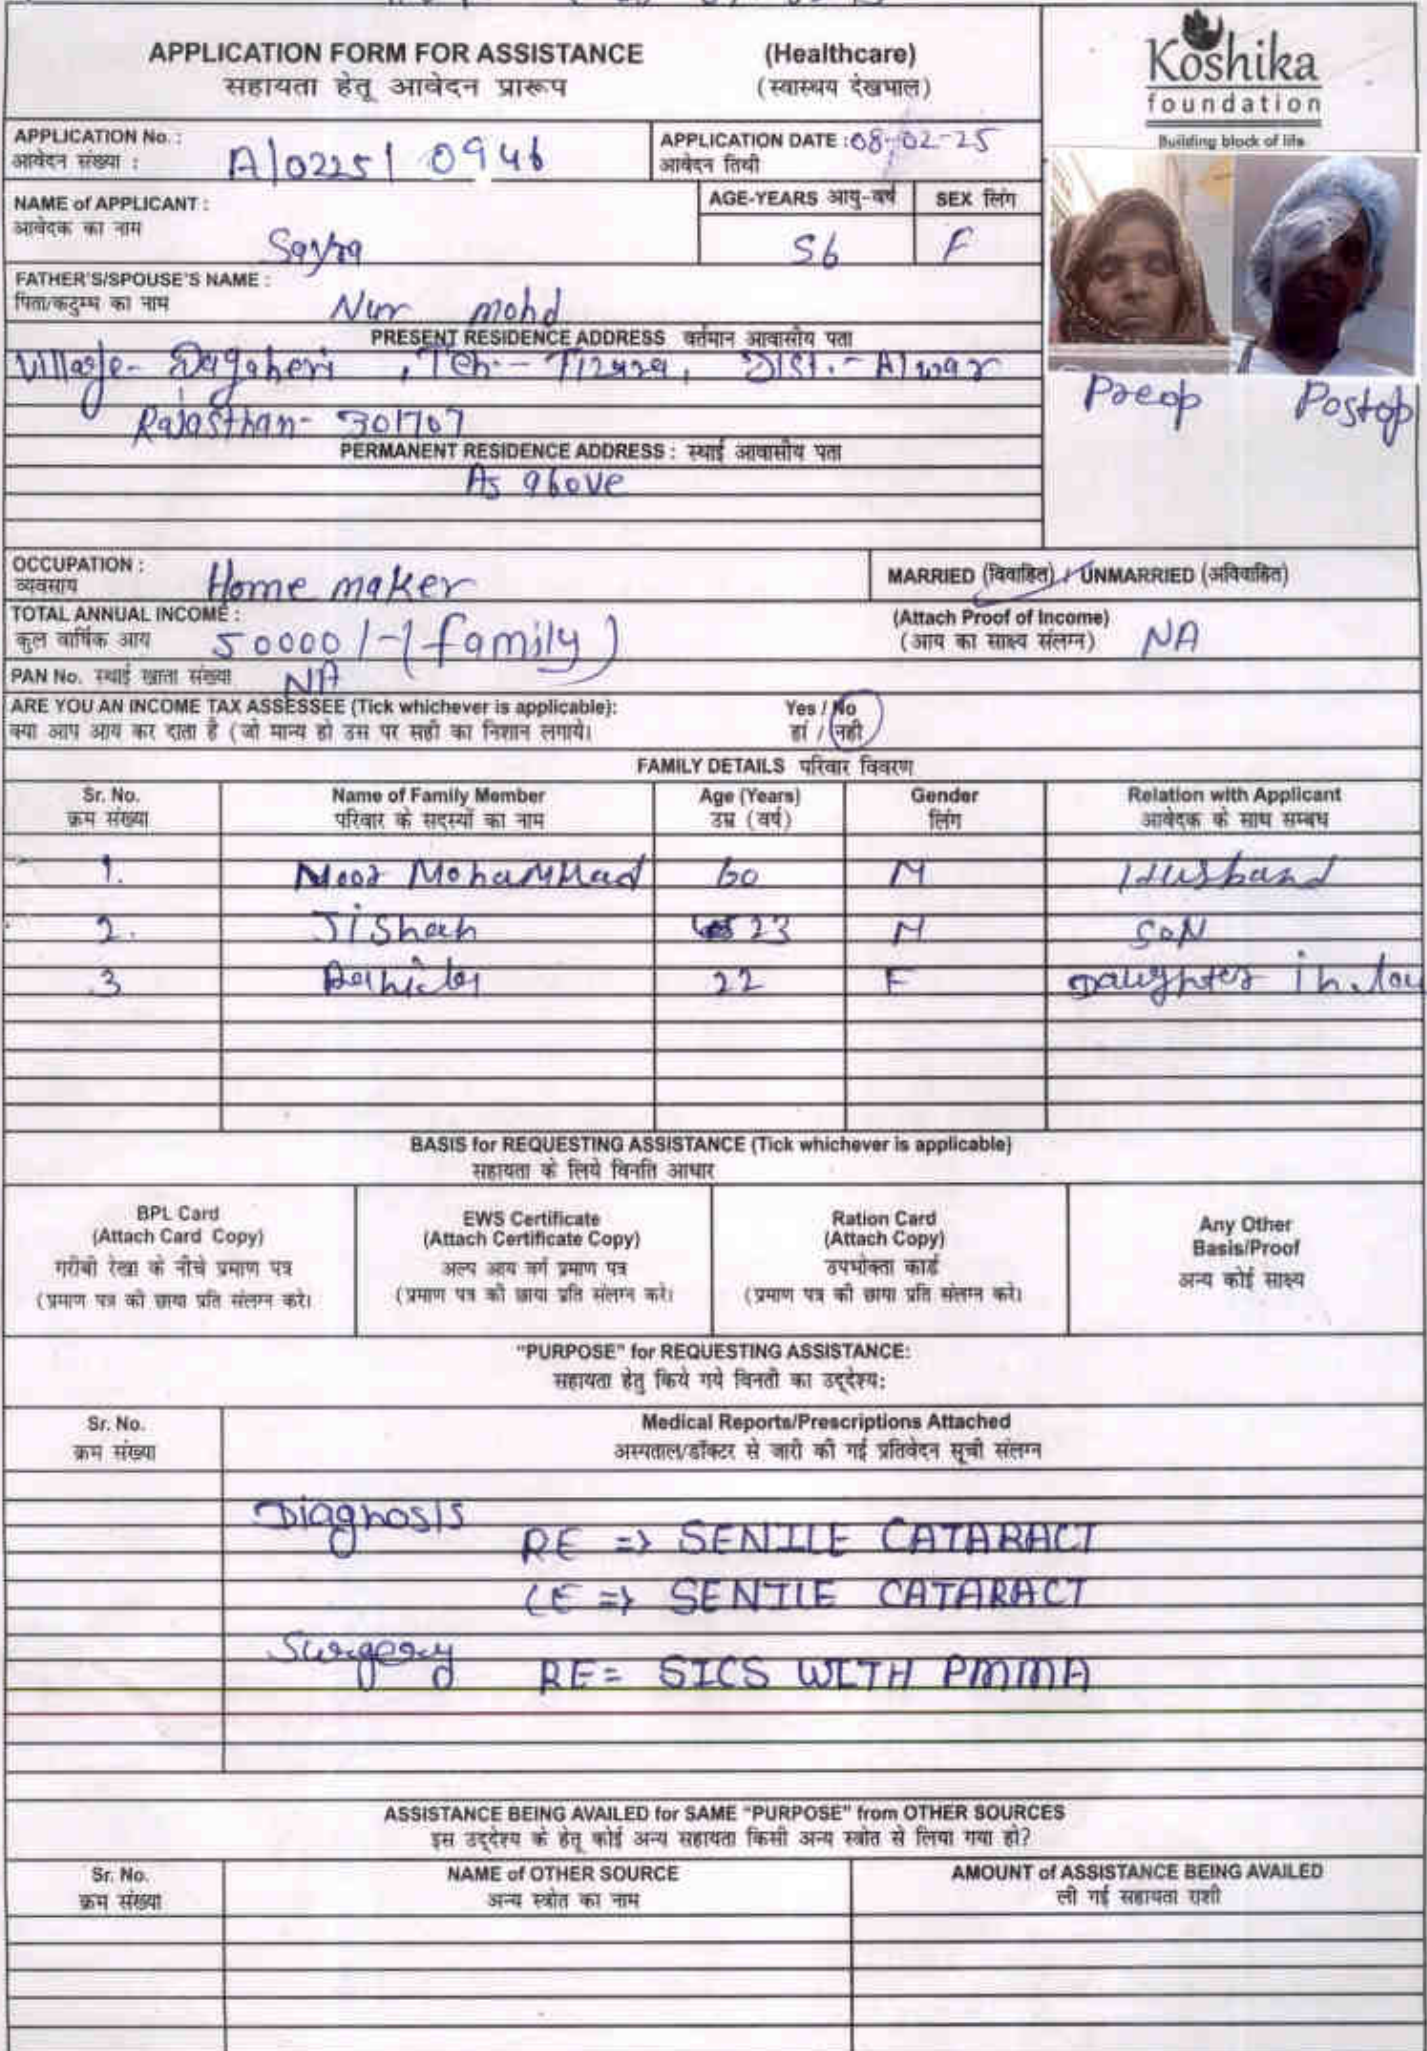 APPLICATION FORM FOR ASSISTANCE (Healthcare)
सहायता हेतू आवेदन प्रारूप (स्वास्थय देखभाल)
Koshika
foundation
Building block of life
APPLICATION No. :
आवेदन संख्या :
A/0225/0946
APPLICATION DATE : 08-02-25
आवेदन तिथी
NAME of APPLICANT :
आवेदक का नाम
Sayra
AGE-YEARS आयु-वर्ष
56
SEX लिंग
F
FATHER'S/SPOUSE'S NAME :
पिता/कटुम्ब का नाम
Nur mohd
PRESENT RESIDENCE ADDRESS वर्तमान आवासीय पता
Village- , Teh.- Tizara, Dist.- Alwar
Rajasthan- 301707
Preop Postop
PERMANENT RESIDENCE ADDRESS : स्थाई आवासीय पता
As above
OCCUPATION :
व्यवसाय
Home maker
MARRIED (विवाहित) / UNMARRIED (अविवाहित)
TOTAL ANNUAL INCOME :
कुल वार्षिक आय
50000/-(family)
(Attach Proof of Income)
(आय का साक्ष्य संलग्न)
NA
PAN No. स्थाई खाता संख्या
NA
ARE YOU AN INCOME TAX ASSESSEE (Tick whichever is applicable): Yes / No
क्या आप आय कर दाता है (जो मान्य हो उस पर सही का निशान लगाये। हां / नही
FAMILY DETAILS परिवार विवरण
Sr. No. Name of Family Member Age (Years) Gender Relation with Applicant
क्रम संख्या परिवार के सदस्यों का नाम उम्र (वर्ष) लिंग आवेदक के साथ सम्बध
1. Noor Mohammad 60 M Husband
2. Jishah 23 M SON
3 22 F Daughter in law
BASIS for REQUESTING ASSISTANCE (Tick whichever is applicable)
सहायता के लिये विनति आधार
BPL Card
(Attach Card Copy)
गरीबी रेखा के नीचे प्रमाण पत्र
(प्रमाण पत्र की छाया प्रति संलग्न करे।
EWS Certificate
(Attach Certificate Copy)
अल्प आय वर्ग प्रमाण पत्र
(प्रमाण पत्र की छाया प्रति संलग्न करे।
Ration Card
(Attach Copy)
उपभोक्ता कार्ड
(प्रमाण पत्र की छाया प्रति संलग्न करे।
Any Other
Basis/Proof
अन्य कोई साक्ष्य
"PURPOSE" for REQUESTING ASSISTANCE:
सहायता हेतु किये गये विनती का उद्देश्य:
Sr. No. Medical Reports/Prescriptions Attached
क्रम संख्या अस्पताल/डॉक्टर से जारी की गई प्रतिवेदन सूची संलग्न
Diagnosis
RE => SENILE CATARACT
LE => SENILE CATARACT
Surgery
RE= SICS WITH PMMA
ASSISTANCE BEING AVAILED for SAME "PURPOSE" from OTHER SOURCES
इस उद्देश्य के हेतू कोई अन्य सहायता किसी अन्य स्त्रोत से लिया गया हो?
Sr. No. NAME of OTHER SOURCE AMOUNT of ASSISTANCE BEING AVAILED
क्रम संख्या अन्य स्त्रोत का नाम ली गई सहायता राशी